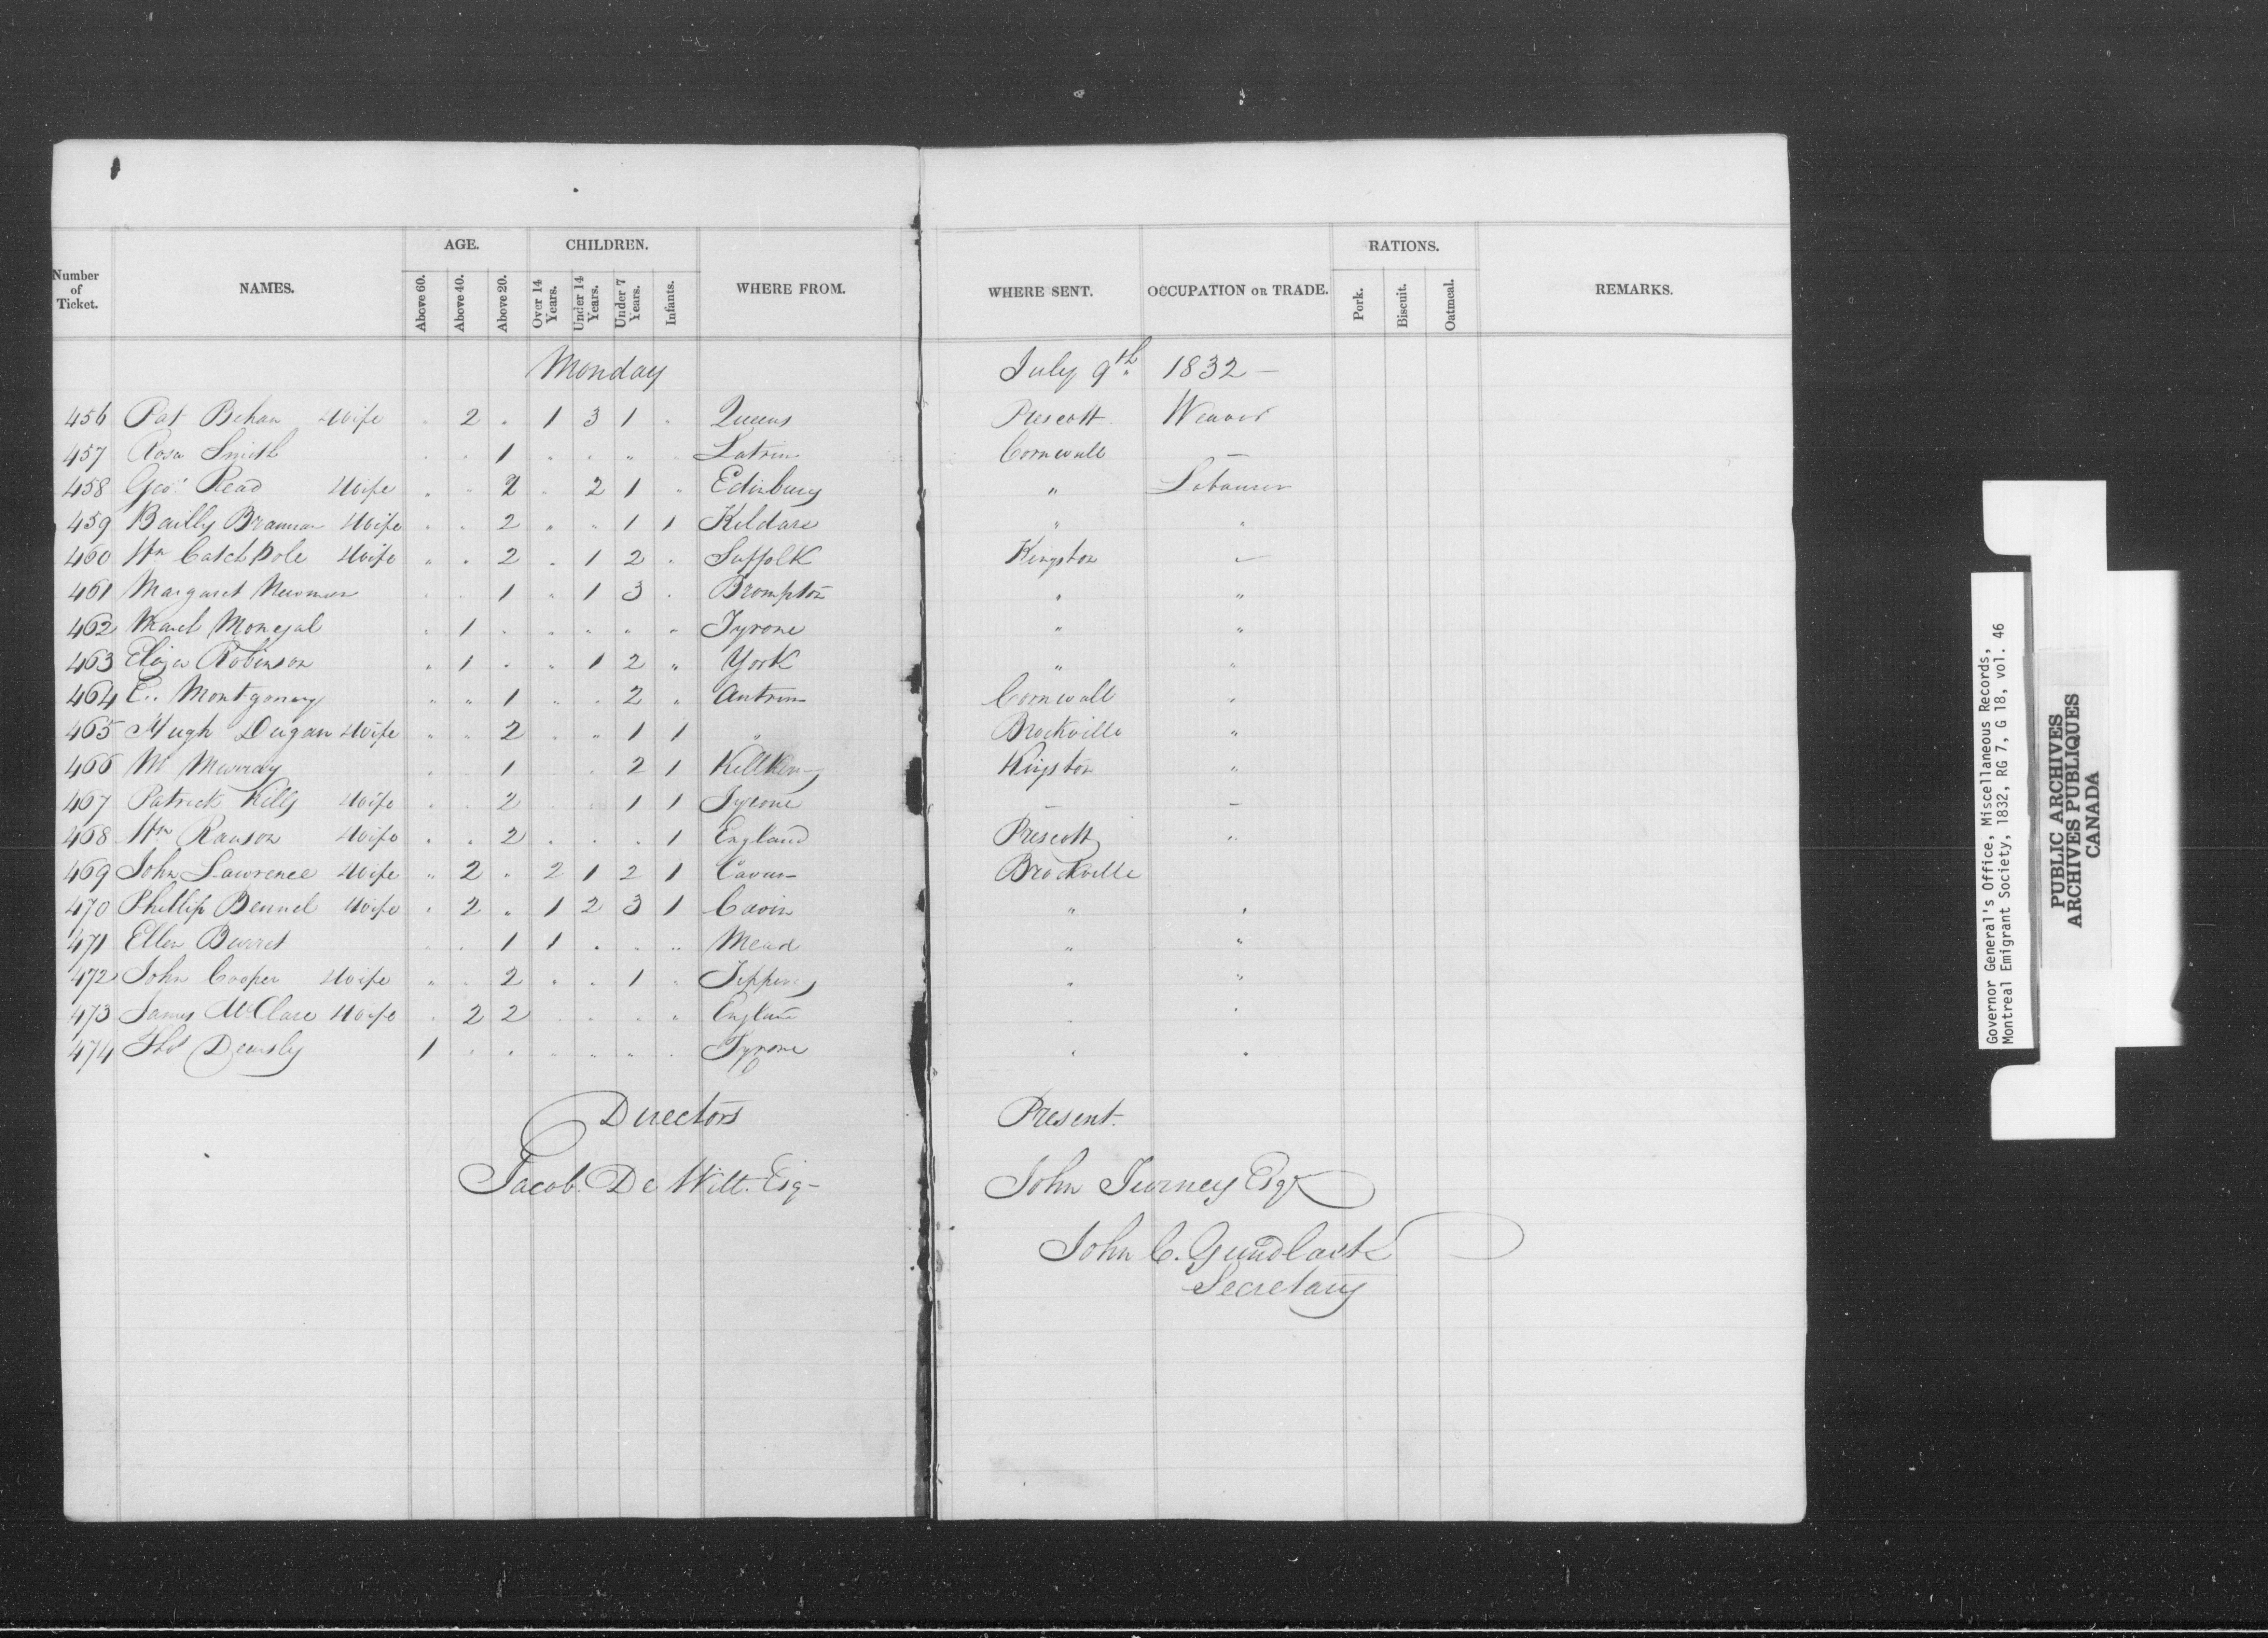 Number of Ticket. NAMES. AGE. Above 60. Above 40. Above 20. CHILDREN. Over 14 Years. Under 14 Years. Under 7 Years. Infants. WHERE FROM. WHERE SENT. OCCUPATION OR TRADE. RATIONS. Pork. Biscuit. Oatmeal. REMARKS.
Monday July 9th 1832 –
456 Pat Behan Wife " 2 " 1 3 1 " Queens Prescott Weaver
457 Rosa Smith " " 1 " " " " Latrim Cornwall –
458 Geo: Read Wife " " 2 " 2 1 " Edinburg " Labourer
459 Bailly Brannan Wife " " 2 " " 1 1 Kildare " "
460 Wm Catchpole Wife " " 2 " 1 2 " Suffolk Kingston "
461 Margaret Newman " " 1 " 1 3 " Brompton " "
462 " 1 " " " " " Tyrone " "
463 Eliza Robinson " 1 " " 1 2 " York " "
464 E.. Montgomery " " 1 " " 2 " Antrim Cornwall "
465 Hugh Dugan Wife " " 2 " " 1 1 " Brockville "
466 M Murray " " 1 " " 2 1 Killkeny Kingston "
467 Patrick Kelly Wife " " 2 " " 1 1 Tyrone – –
468 Wm Ranson Wife " " 2 " " " 1 England Prescott "
469 John Lawrence Wife " 2 " 2 1 2 1 Cavan Brockville
470 Phillip Bennel Wife " 2 " 1 2 3 1 Cavin " "
471 Ellen " " 1 1 " " " Mead " "
472 John Cooper Wife " " 2 " " 1 " Tippery " "
473 James McClare Wife " 2 2 " " " " England " "
474 Thos 1 " " " " " " Tyrone " "
Directors Present.
Jacob De Witt. Esq– John Turney Esqr
John C. Gundlack
Secretary
Governor General's Office, Miscellaneous Records,
Montreal Emigrant Society, 1832, RG 7, G 18, vol. 46
PUBLIC ARCHIVES
ARCHIVES PUBLIQUES
CANADA